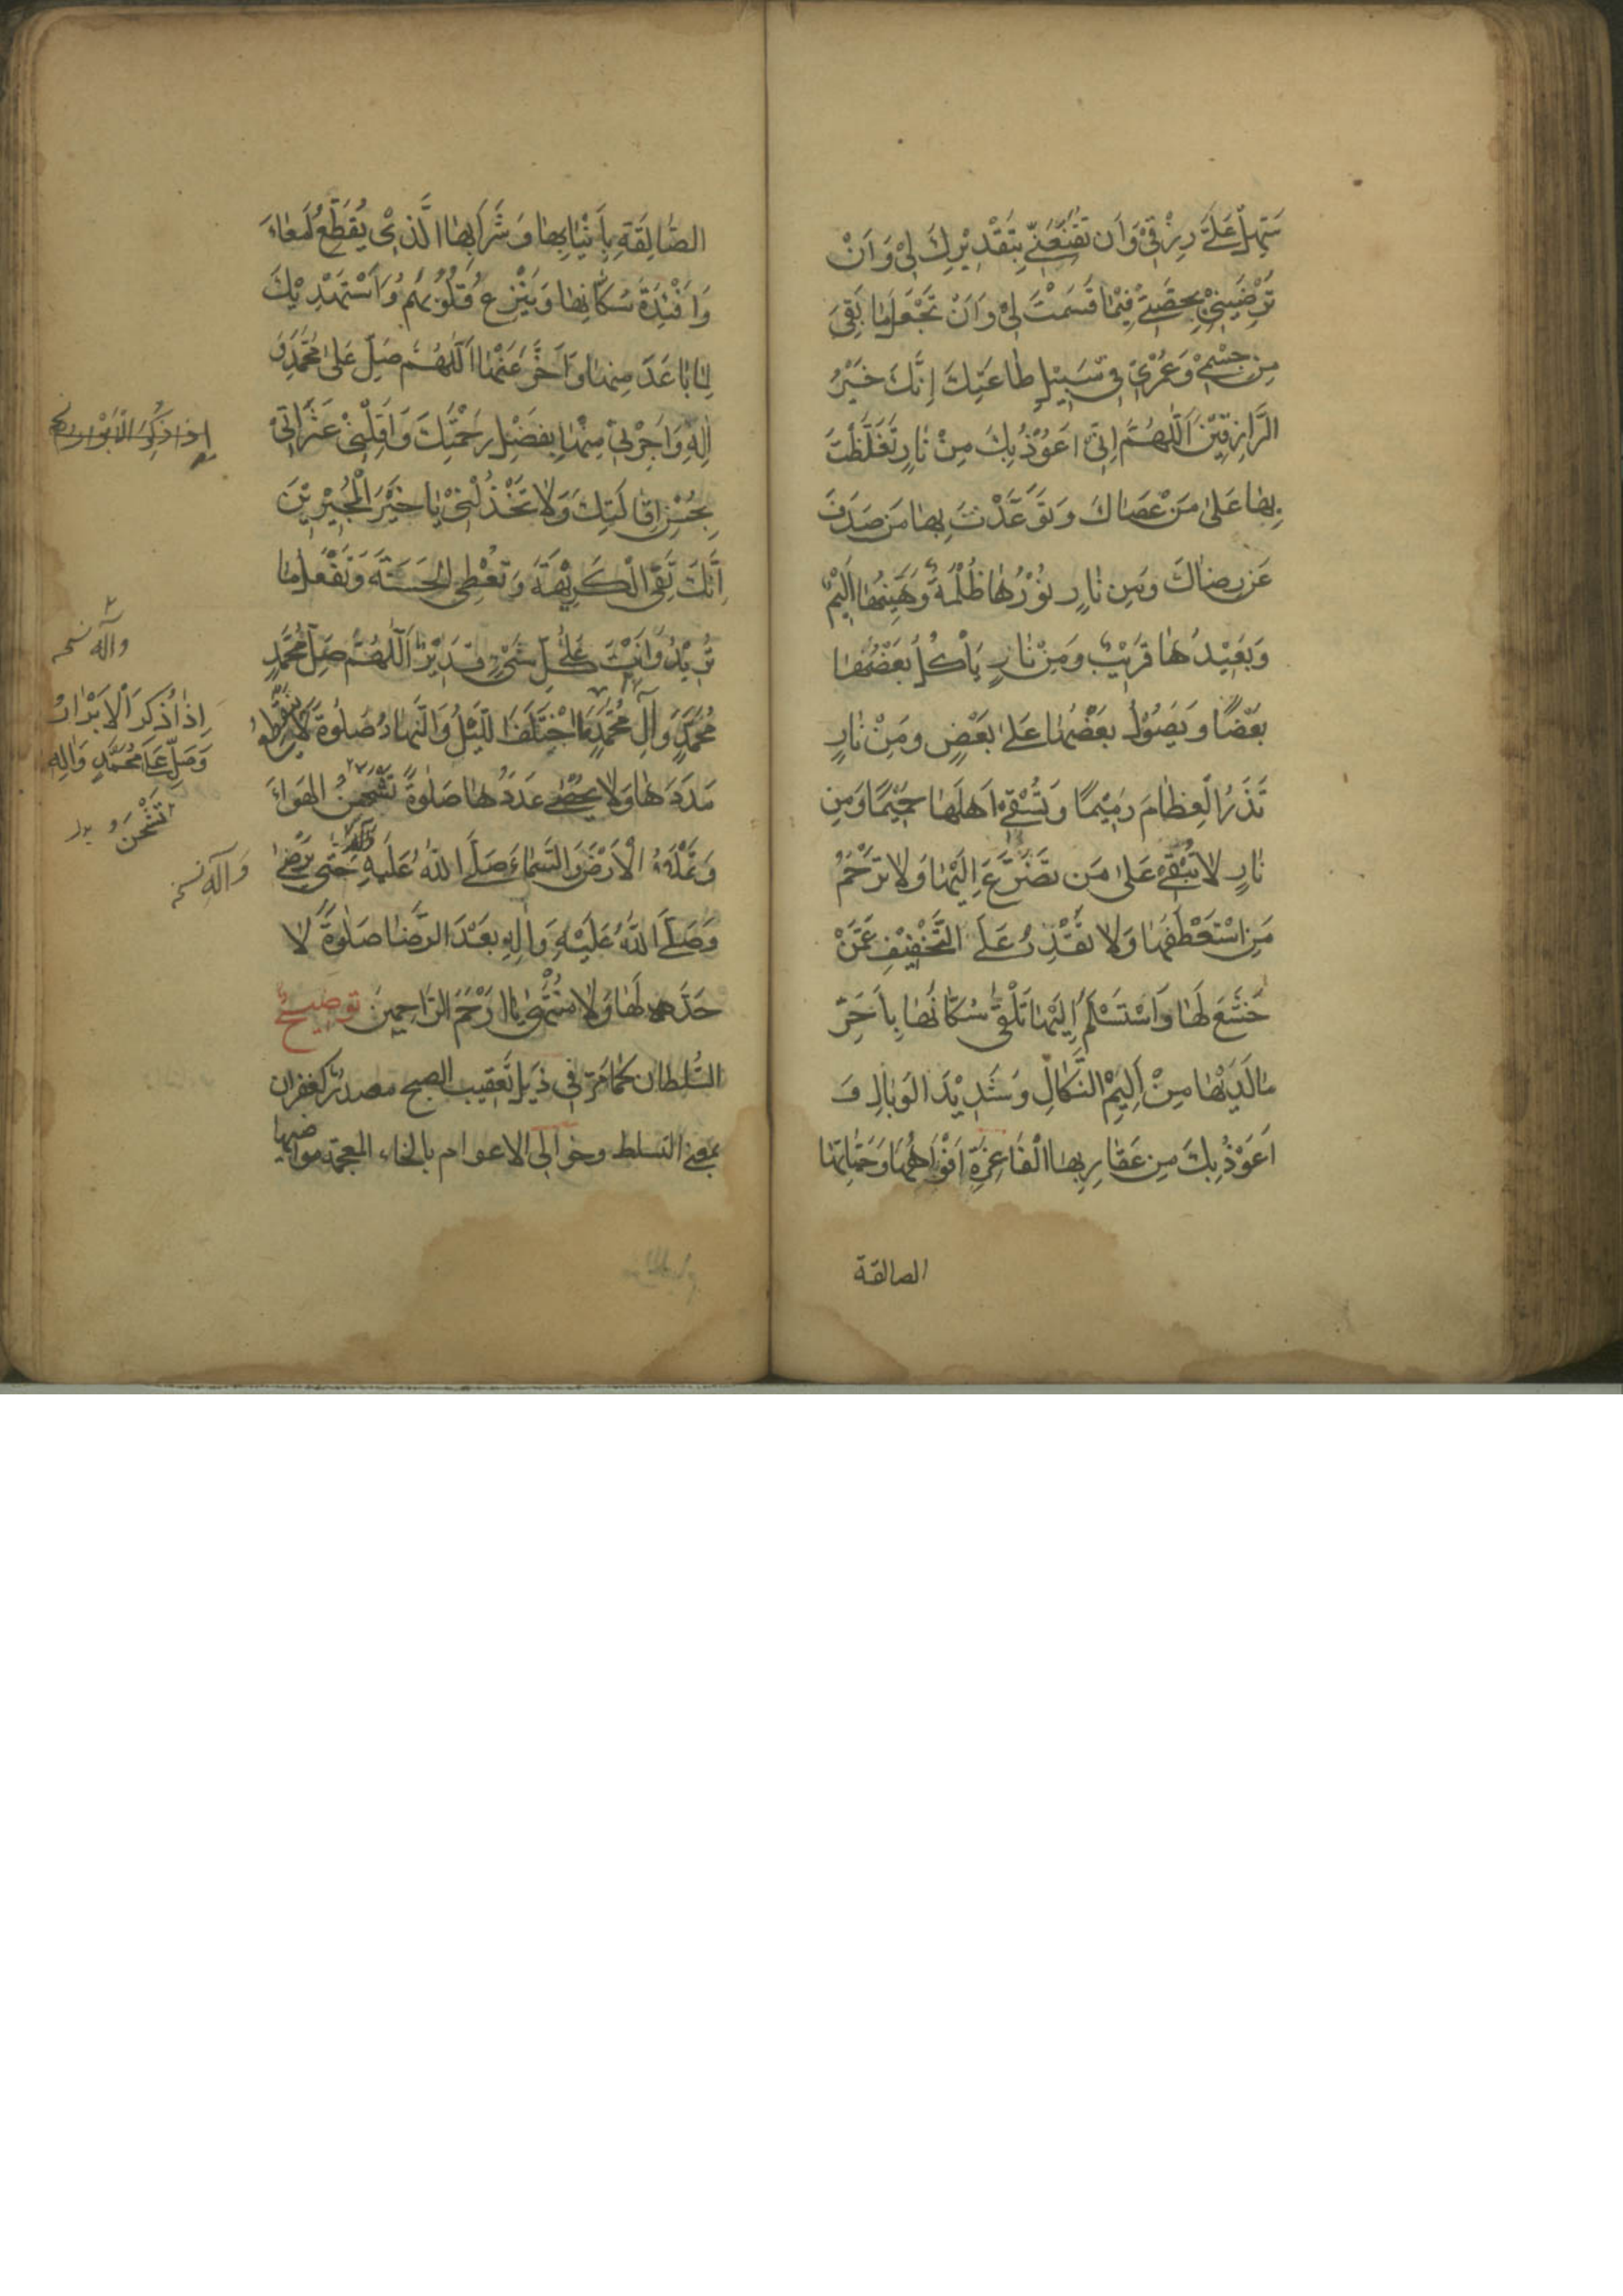 سَتِّهِلْ عَلَىَّ رِزْقِيْ وَاَن تُقَنِّعَنِيّ بِتَقْدِيْرِكَ لِيْ وَ اَنْ
تُرْضِيَنِيْ بِحِصَّتِيْ فِيْمَا قَسَمْتَ لِيْ وَ اَنْ تَجْعَلَ مٰا بَقِىَ
مِن جِسْمِيْ وَعُمْرِيْ فِي سَبِيْلِ طٰاعَتِكَ اِنَّكَ خَيْرُ
الرَّازِقِيْنَ اَللّٰهُمَّ اِنِّيْ اَعُوْذُ بِكَ مِنْ نٰارٍ تَغَلَّظْتَ
بِهٰا عَلىٰ مَنْ عَصٰاكَ وَ تَوَعَّدْتَ بِهٰا مَن صَدَفَ
عَن رِضٰاكَ وَمِن نٰارٍ نُوْرُهٰا ظُلْمَةٌ وَ هَيِّنُهٰا اَلِيْمٌ
وَ بَعِيْدُهٰا قَرِيْبٌ وَمِنْ نٰارٍ يَأْكُلُ بَعْضُهٰا
بَعْضًا وَ يَصُوْلُ بَعْضُهٰا عَلىٰ بَعْضٍ وَمِنْ نٰارٍ
تَذَرُ الْعِظٰامَ رَمِيْمًا وَ تُسْقِيْ اَهلَهٰا حَمِيْمًا وَمِن
نٰارٍ لٰا تُبْقِيْ عَلىٰ مَن تَضَرَّعَ اِلَيْهٰا وَلٰا تَرْحَمُ
مَنِ اسْتَعْطَفَهٰا وَلٰا تَقْدِرُ عَلَى التَّخْفِيْفِ عَمَّنْ
خَشَعَ لَهٰا وَاسْتَسْلَمَ اِلَيْهٰا تَلْقىٰ سُكّٰانَهٰا بِاَحَرِّ
مٰا لَدَيْهٰا مِنْ اَلِيْمِ النَّكٰالِ وَ شَدِيْدِ الْوَبٰالِ وَ
اَعُوْذُ بِكَ مِن عَقٰارِبِهٰا الْفٰاغِرَةِ اَفْوٰاهُهٰا وَحَيّٰاتِهٰا
الصالقة
الصّٰالِقَةِ بِاَنْيٰابِهٰا وَ شَرٰابِهٰا الَّذِيْ يُقَطِّعُ اَمْعٰاءَ
وَ اَفْئِدَةَ سُكّٰانِهٰا وَ يَنْزِعُ قُلُوْبَهُمْ وَ اَسْتَهْدِيْكَ
لِمٰا بٰاعَدَ مِنهٰا وَ اَخَّرَ عَنْهٰا اَللّٰهُمَّ صَلِّ عَلىٰ مُحَمَّدٍ وَ
اٰلِهِ وَ اَجِرْنِيْ مِنْهٰا بِفَضْلِ رَحْمَتِكَ وَ اَقِلْنِيْ عَثَرٰاتِيْ
بِحُسْنِ اِقٰالَتِكَ وَلٰا تَخْذُلْنِيْ يٰا خَيْرَ الْمُجِيْرِيْنَ
اِنَّكَ تَقِى الْكَرِيْهَةَ وَ تُعْطِى الْحَسَنَةَ وَ تَفْعَلُ مٰا
تُرِيْدُ وَ اَنْتَ عَلىٰ كُلِّ شَيْءٍ قَدِيْرٌ اَللّٰهُمَّ صَلِّ مُحَمَّدٍ
مُحَمَّدٍ وَ آلِ مُحَمَّدٍ مَا اخْتَلَفَ الَّيْلُ وَ النَّهٰارُ صَلٰوةً لٰا يَنْقَطِعُ
مَدَدُهٰا وَلٰا يُحْصىٰ عَدَدُهٰا صَلٰوةً تَشْحَنُ الهَوٰاءَ
وَ تَمْلَأُ الْاَرْضَ وَ السَّمٰاءَ صَلَّى اللهُ عَلَيهِ حَتّىٰ يَرْضىٰ
وَ صَلَّى اللهُ عَلَيْهِ وَ اٰلِهِ بَعْدَ الرِّضٰا صَلٰوةً لٰا
حَدَّ لَهٰا وَلٰا مُنْتَهىٰ يٰا اَرْحَمَ الرّٰاحِمِينَ توضيح
السُّلطان كما مَرّ في ذيل تعقيب الصبح مصدر كغفران
بمعنى التسلط وخوالي الاعوام بالخاء المعجمة مواضيها
اِذا ذُكِرَ الْاَبْرار
وآله نسخه
اِذٰا ذُكِرَ الْاَبْرٰارُ
وَصَلِّ عَلىٰ مُحَمَّدٍ وَاٰلِهِ
تَشْحَنُ
وَ آلِهِ نسخه